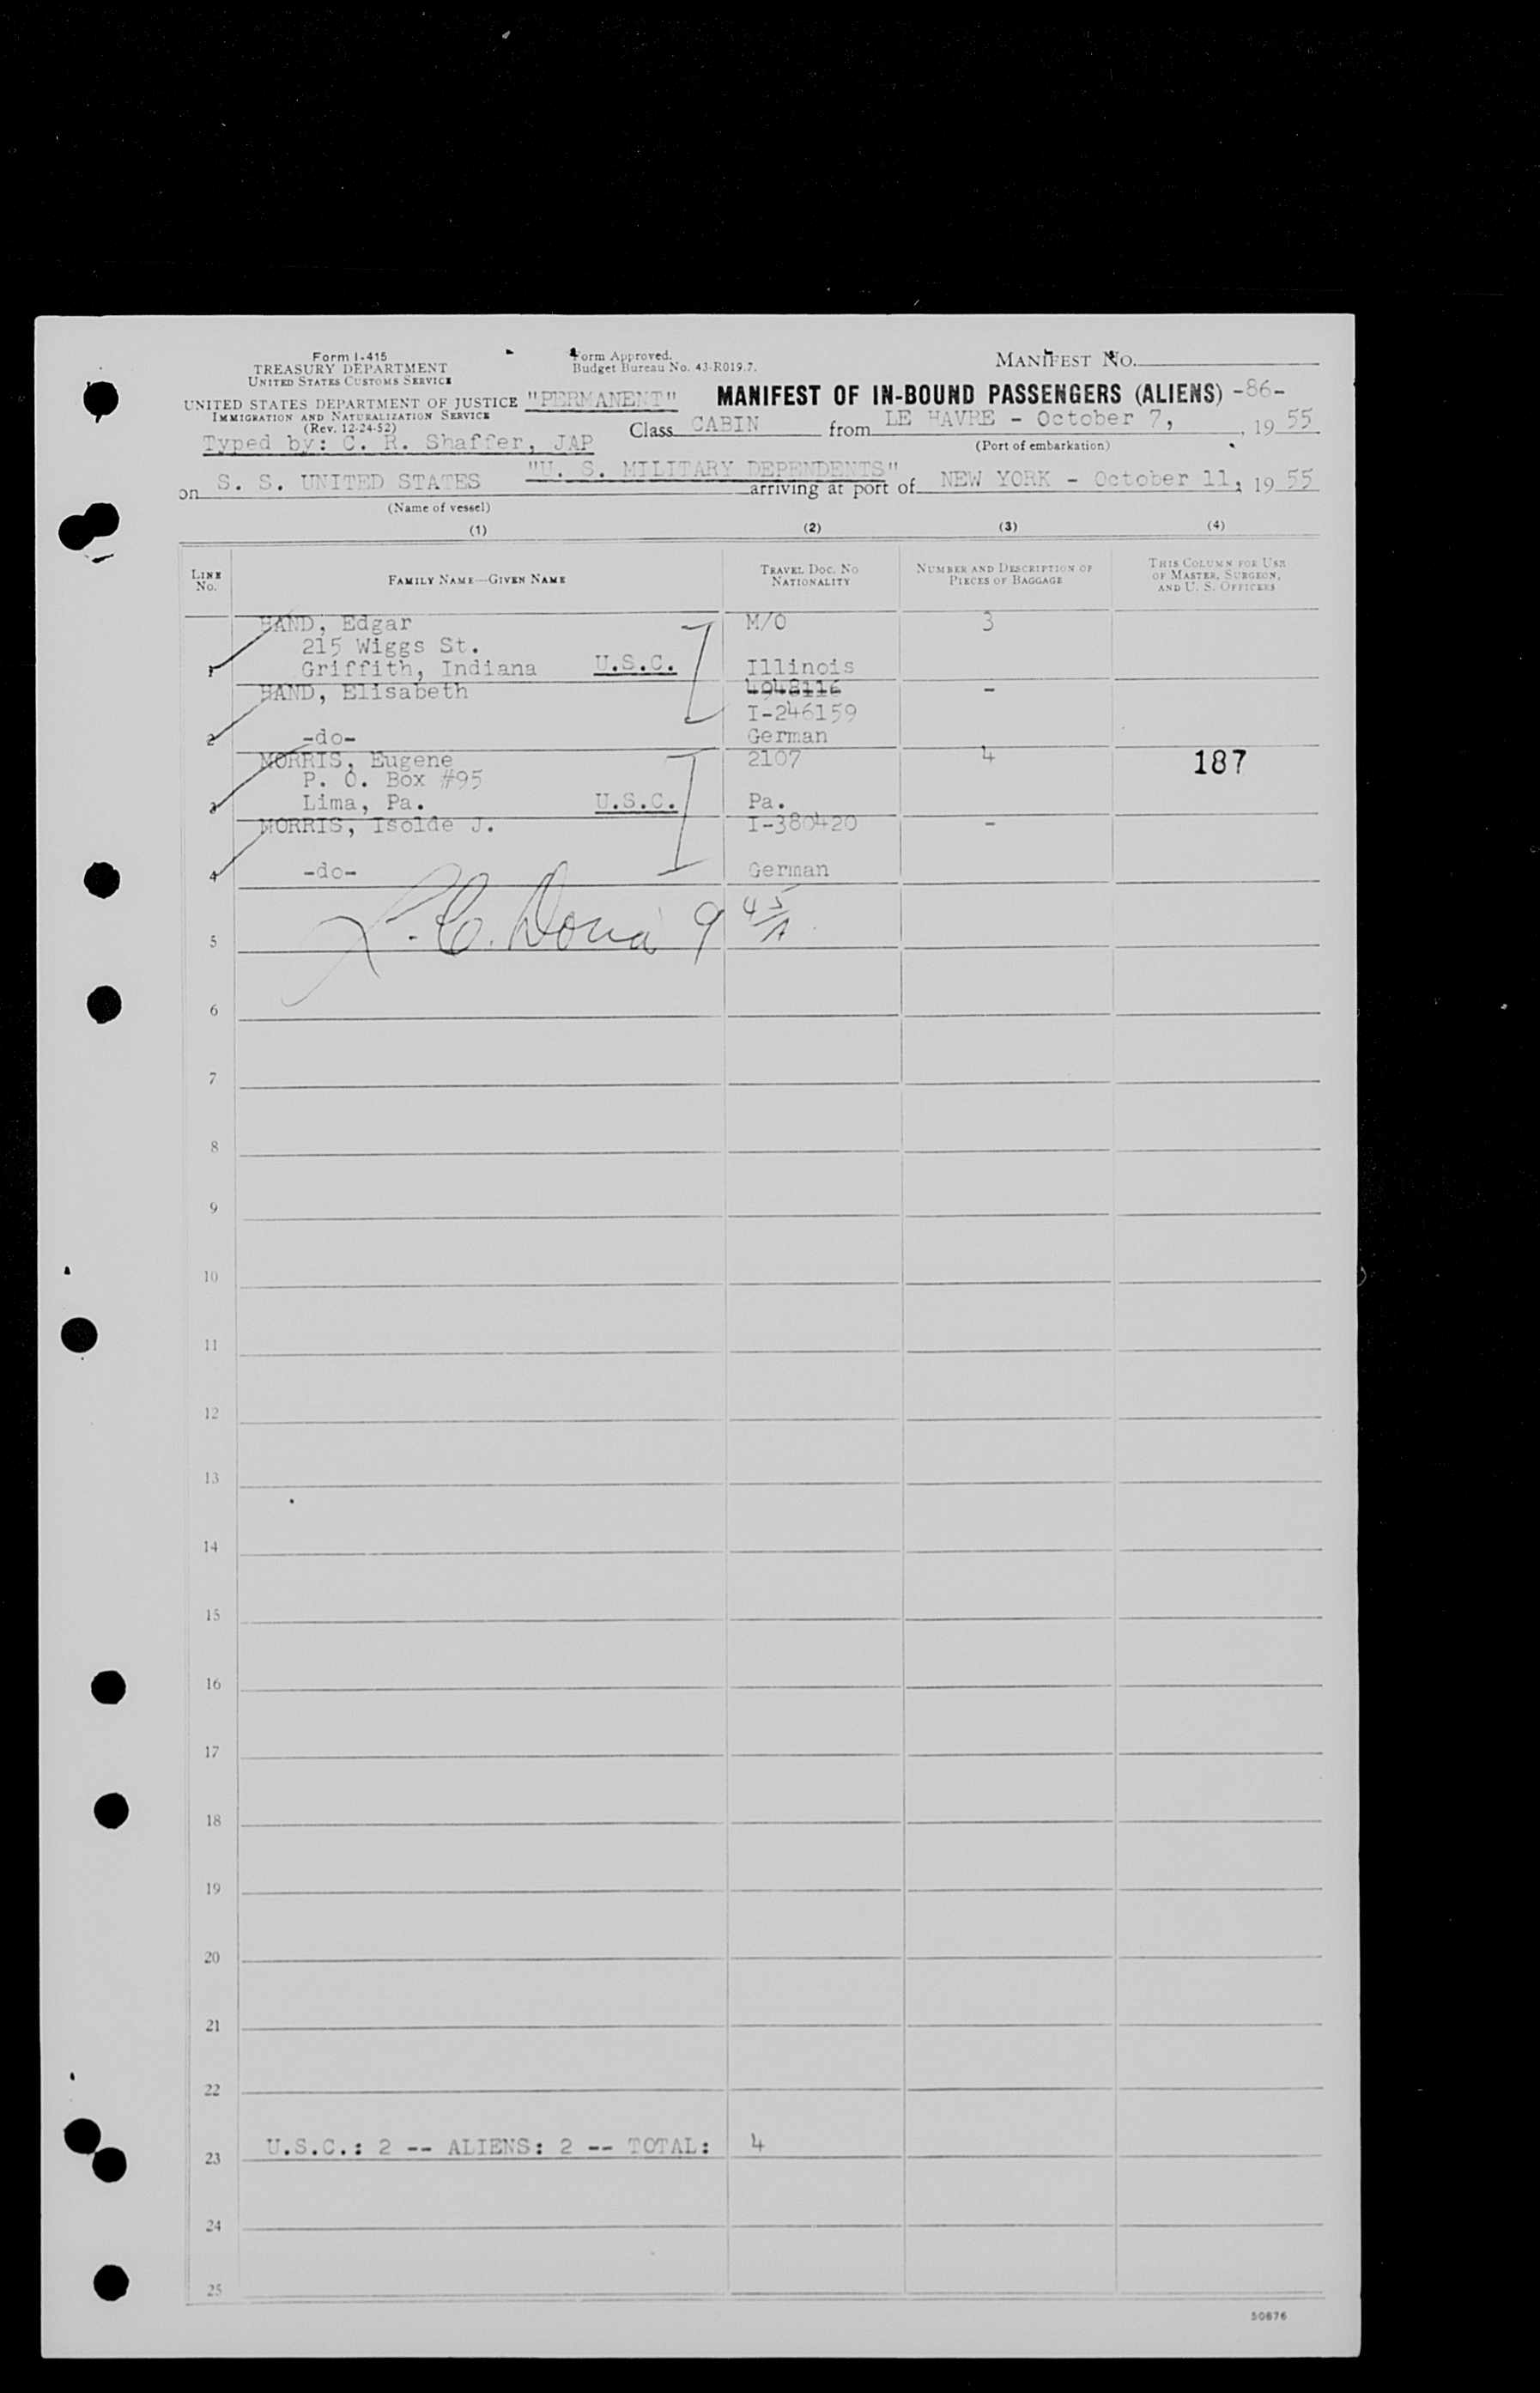 Form I-415
TREASURY DEPARTMENT
UNITED STATES CUSTOMS SERVICE
Form Approved.
Budget Bureau No. 43-R019.7.
MANIFEST NO.
UNITED STATES DEPARTMENT OF JUSTICE "PERMANENT" MANIFEST OF IN-BOUND PASSENGERS (ALIENS) -86-
IMMIGRATION AND NATURALIZATION SERVICE
(Rev. 12-24-52)
Class CABIN from LE HAVRE - October 7, , 19 55
Typed by: C. R. Shaffer, JAP
(Port of embarkation)
"U. S. MILITARY DEPENDENTS"
on S. S. UNITED STATES arriving at port of NEW YORK - October 11, 19 55
(Name of vessel)
(1) (2) (3) (4)
LINE No. FAMILY NAME—GIVEN NAME TRAVEL DOC. NO NATIONALITY NUMBER AND DESCRIPTION OF PIECES OF BAGGAGE THIS COLUMN FOR USE OF MASTER, SURGEON, AND U. S. OFFICERS
HAND, Edgar M/O 3
215 Wiggs St.
1 Griffith, Indiana U.S.C. Illinois
HAND, Elisabeth 4948116 -
I-246159
2 -do- German
MORRIS, Eugene 2107 4 187
P. O. Box #95
3 Lima, Pa. U.S.C. Pa.
MORRIS, Isolde J. I-380420 -
4 -do- German
5
6
7
8
9
10
11
12
13
14
15
16
17
18
19
20
21
22
23 U.S.C.: 2 -- ALIENS: 2 -- TOTAL: 4
24
25
50676